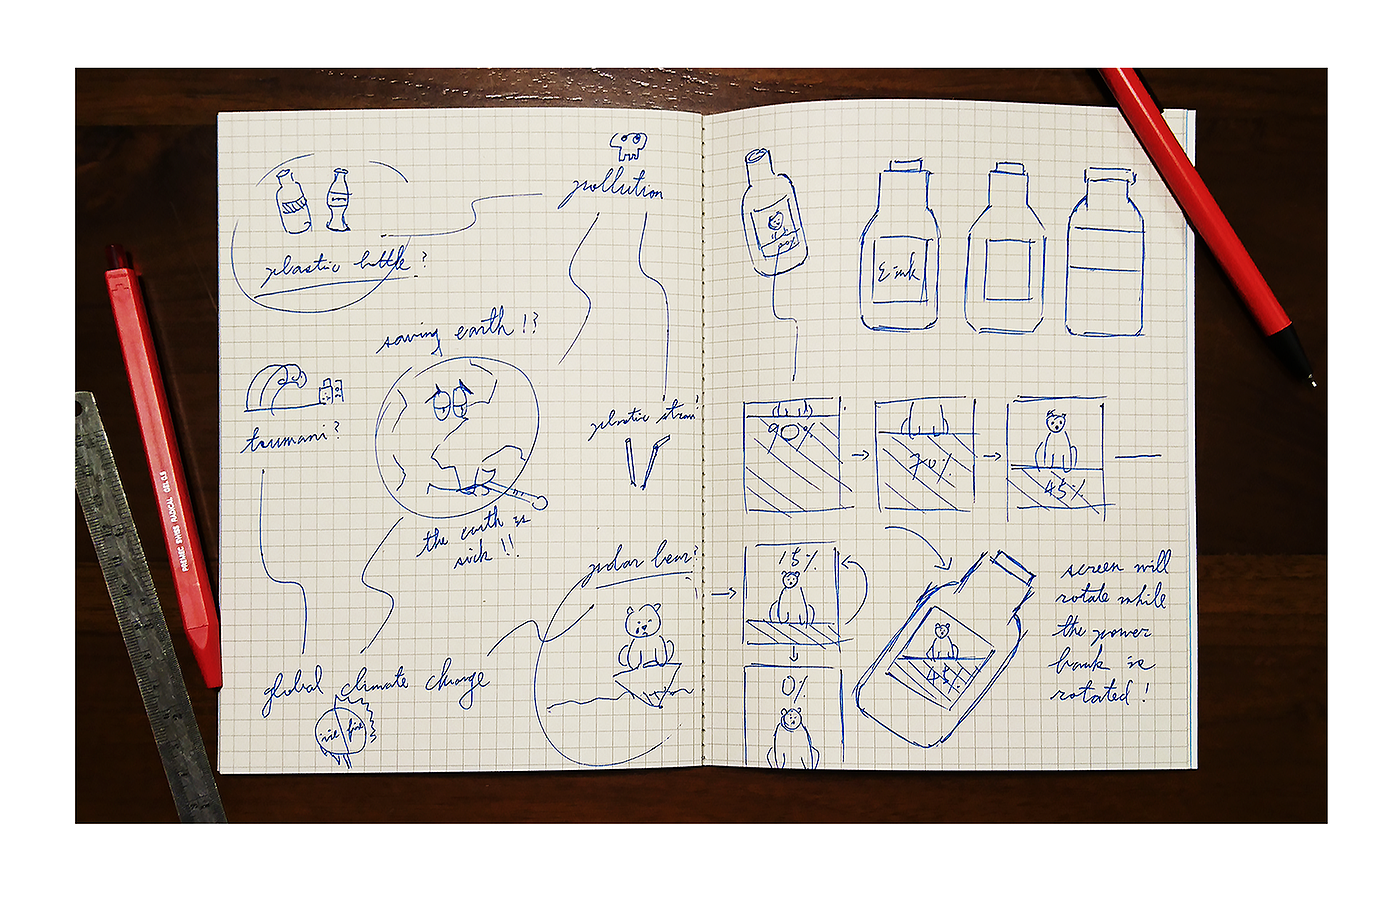 pollution
plastic bottle?
saving earth !?
tsumani?
plastic straw?
the earth is
sick !!
polar bear?
global climate change
ice
fire
90%
E-ink
90%
70%
45%
15%
0%
45%
screen will
rotate while
the power
bank is
rotated !
PREMEC SWISS RADICAL GEL 0.5